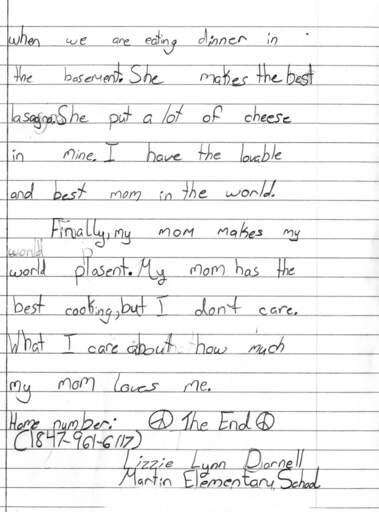 when we are eating dinner in
the basement. She makes the best
lasagna. She put a lot of cheese
in mine. I have the lovable
and best mom in the world.
Finally, my mom makes my
world
world plasent. My mom has the
best cooking, but I don't care.
What I care about how much
my mom loves me.
Home number: ☮ The End ☮
(1847-961-6117)
Lizzie Lynn Darnell
Martin Elementary School